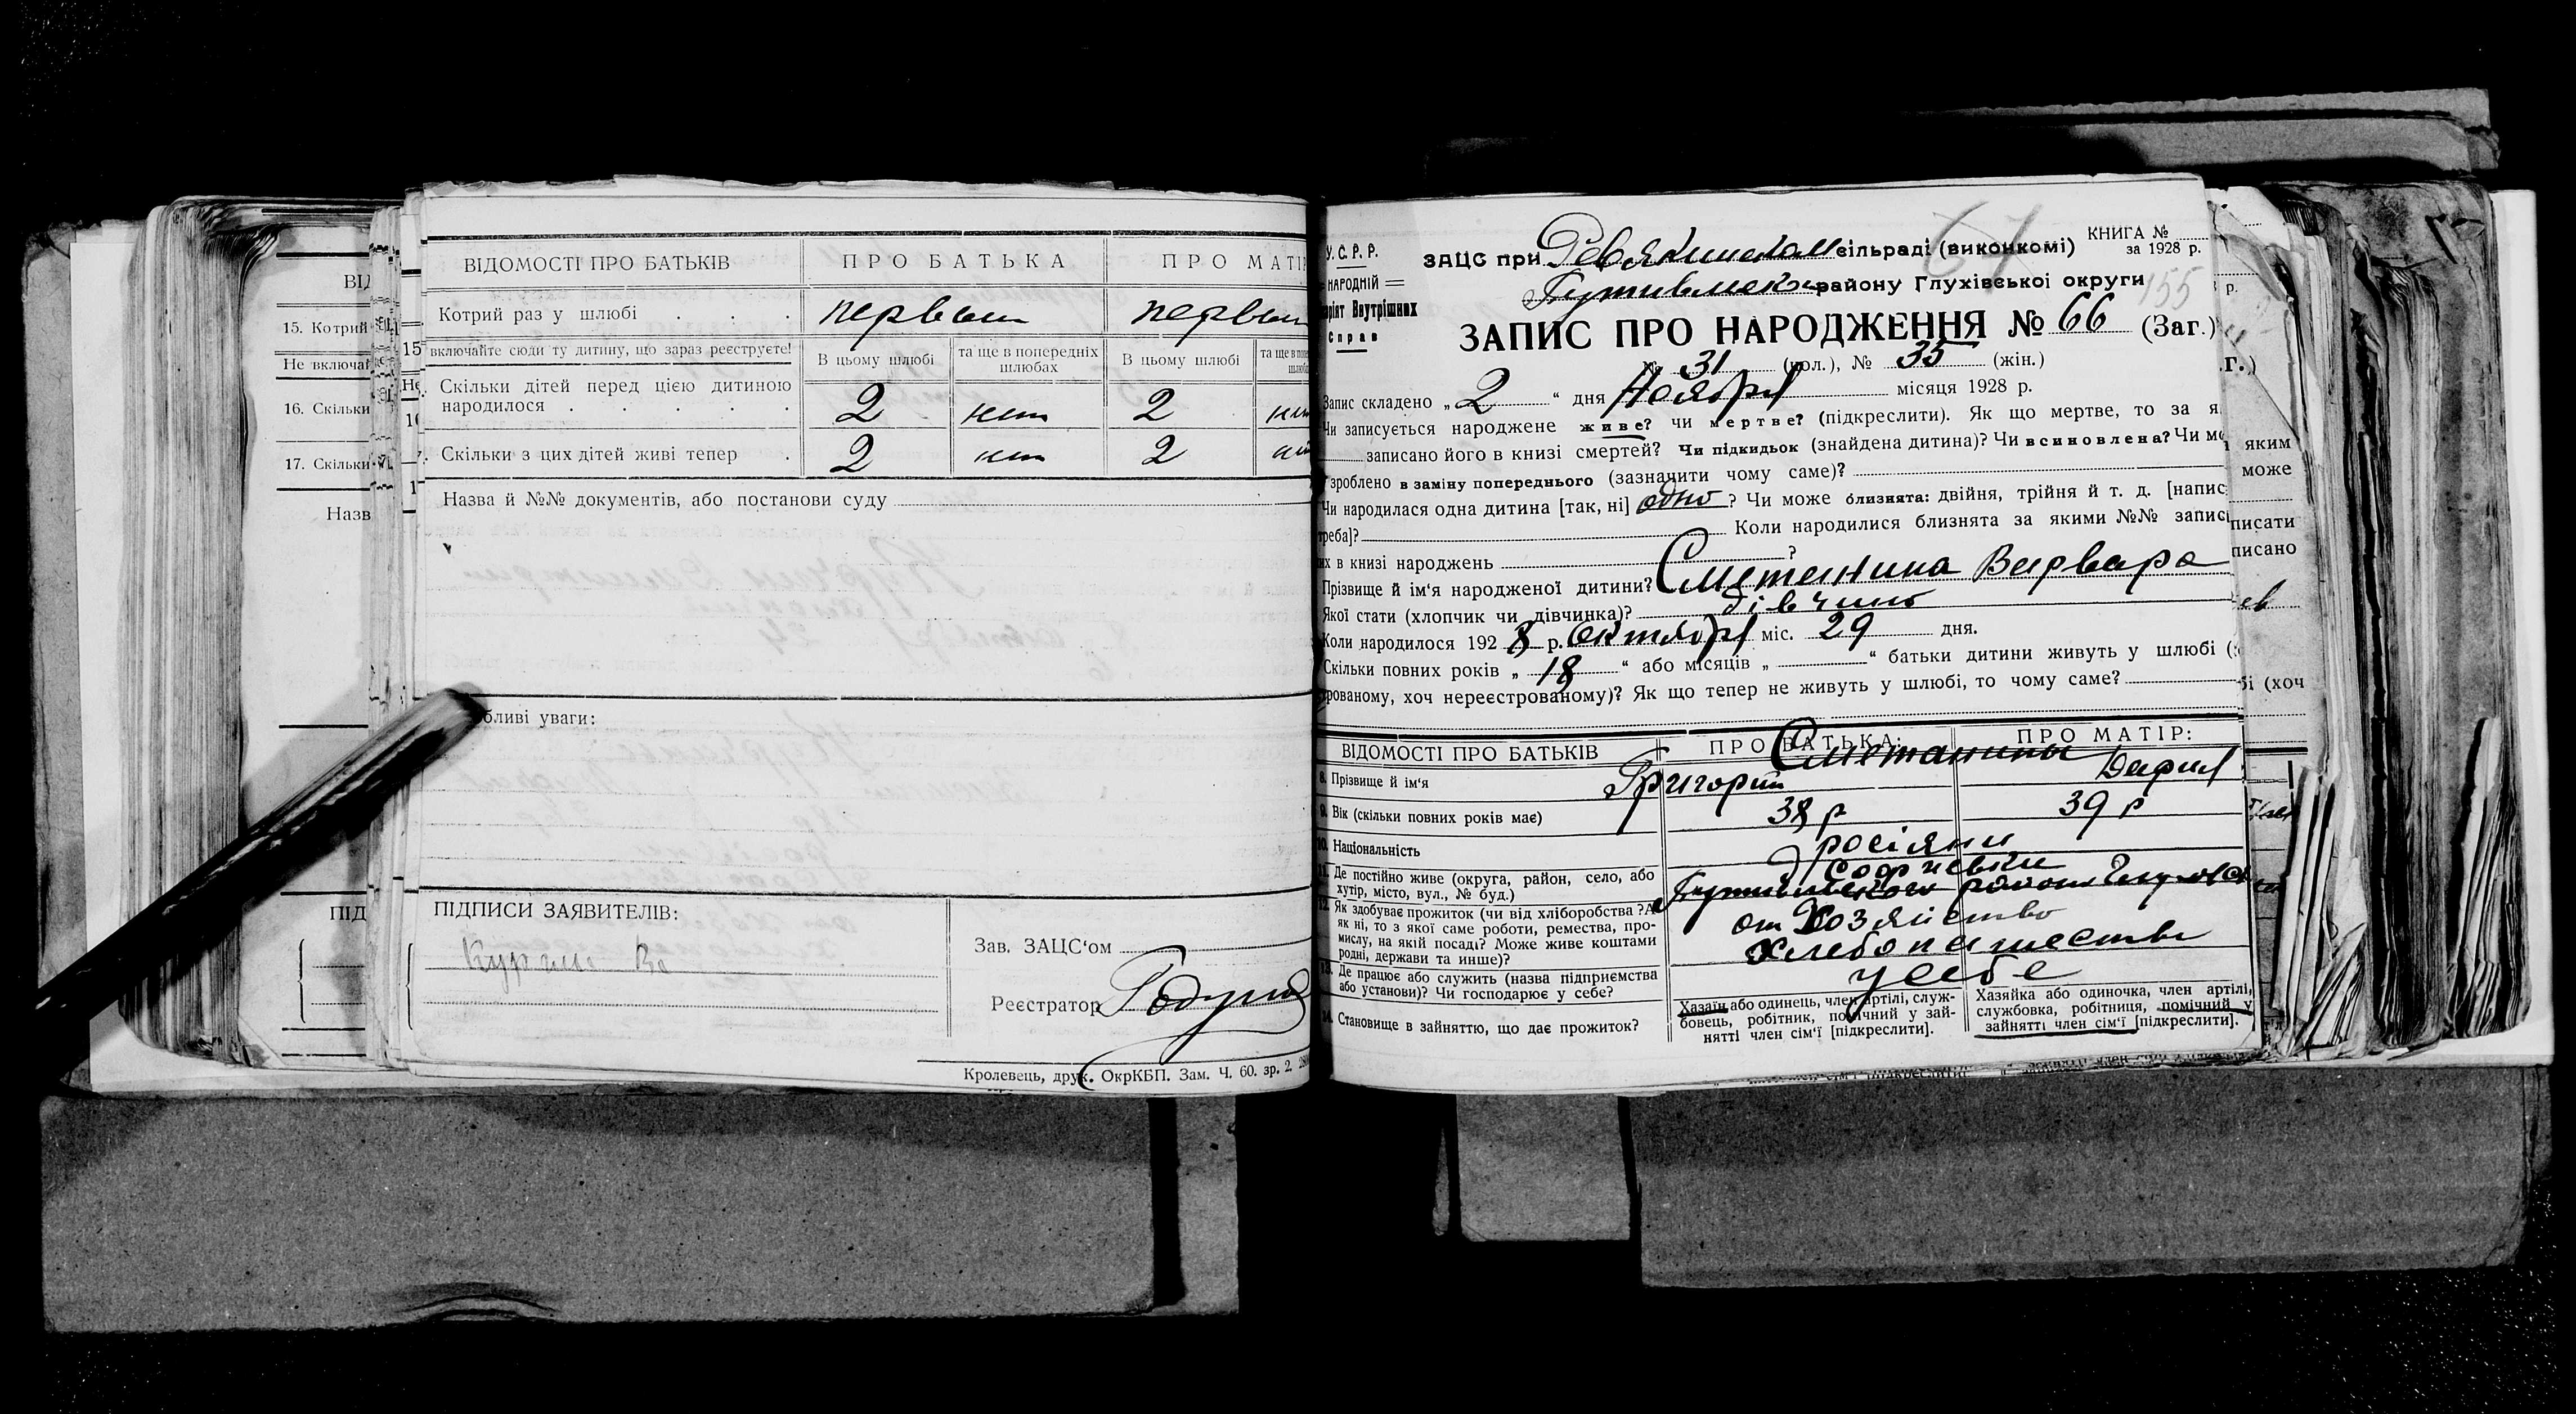 ВІДОМОСТІ ПРО БАТЬКІВ ПРО БАТЬКА ПРО МАТІР
Котрий раз у шлюбі . . . первым первым
включайте сюди ту дитину, що зараз реєструєте! В цьому шлюбі та ще в попередніх шлюбах В цьому шлюбі
Скільки дітей перед цією дитиною
народилося . . . . . 2 нет 2
Скільки з цих дітей живі тепер . 2 нет 2
Назва й №№ документів, або постанови суду
бливі уваги:
ПІДПИСИ ЗАЯВИТЕЛІВ:
Зав. ЗАЦС'ом
Реєстратор
Кролевець, друк. ОкрКБП. Зам. Ч. 60. зр. 2.
15. Котрий
Не включай
16. Скільки
17. Скільки
Назв
ПІД
У.С.Р.Р.
НАРОДНІЙ
Внутрішних
Справ
КНИГА №
за 1928 р.
ЗАЦС при Ревякинском сільраді (виконкомі)
Путивльском району Глухівської округи
155
ЗАПИС ПРО НАРОДЖЕННЯ № 66 (Заг.)
№ 31 (чол.), № 35 (жін.)
Запис складено „ 2 “ дня Ноября місяця 1928 р.
Чи записується народжене живе? чи мертве? (підкреслити). Як що мертве, то за
записано його в книзі смертей? Чи підкидьок (знайдена дитина)? Чи всиновлена? Чи
зроблено в заміну попереднього (зазначити чому саме)?
Чи народилася одна дитина [так, ні] одно? Чи може близнята: двійня, трійня й т. д. [напис
треба]? Коли народилися близнята за якими №№ запис
их в книзі народжень ?
Прізвище й ім'я народженої дитини? Сметанина Варвара
Якої стати (хлопчик чи дівчинка)? дівчина
Коли народилося 1928 р. Октября міс. 29 дня.
Скільки повних років „ 18 “ або місяців „ “ батьки дитини живуть у шлюбі (
рованому, хоч нереєстрованому)? Як що тепер не живуть у шлюбі, то чому саме?
ВІДОМОСТІ ПРО БАТЬКІВ ПРО БАТЬКА: ПРО МАТІР:
Сметанины
8. Прізвище й ім'я Григорий Дафия
9. Вік (скільки повних років має) 38 р 39 р
10. Національність росіяни
11. Де постійно живе (округа, район, село, або
хутір, місто, вул., № буд.) Софиевки
Путивльского района
12. Як здобуває прожиток (чи від хліборобства? А
як ні, то з якої саме роботи, ремества, про-
мислу, на якій посаді? Може живе коштами
родні, держави та инше)?
от Хозяйство
Хлебопашества
13. Де працює або служить (назва підприємства
або установи)? Чи господарює у себе? у себе
14. Становище в зайняттю, що дає прожиток?
Хазаїн або одинець, член артілі, служ-
бовець, робітник, помічний у зай-
нятті член сім'ї [підкреслити].
Хазяйка або одиночка, член артілі,
службовка, робітниця, помічний у
зайнятті член сім'ї [підкреслити].
яким
може
писати
писано
бі (хоч